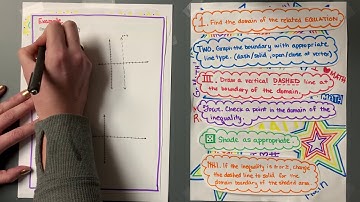 Example
1. Find the domain of the related EQUATION!
TWO. Graph the boundary with appropriate
line type. (dash/solid, open/close at vertex)
MATH
III. Draw a vertical DASHED line at
the boundary of the domain.
MATH
Four. Check a point in the domain of the
inequality.
5 Shade as appropriate.
If the inequality is ≤ or ≥, change
the dashed line to solid for the
domain boundary of the shaded area.